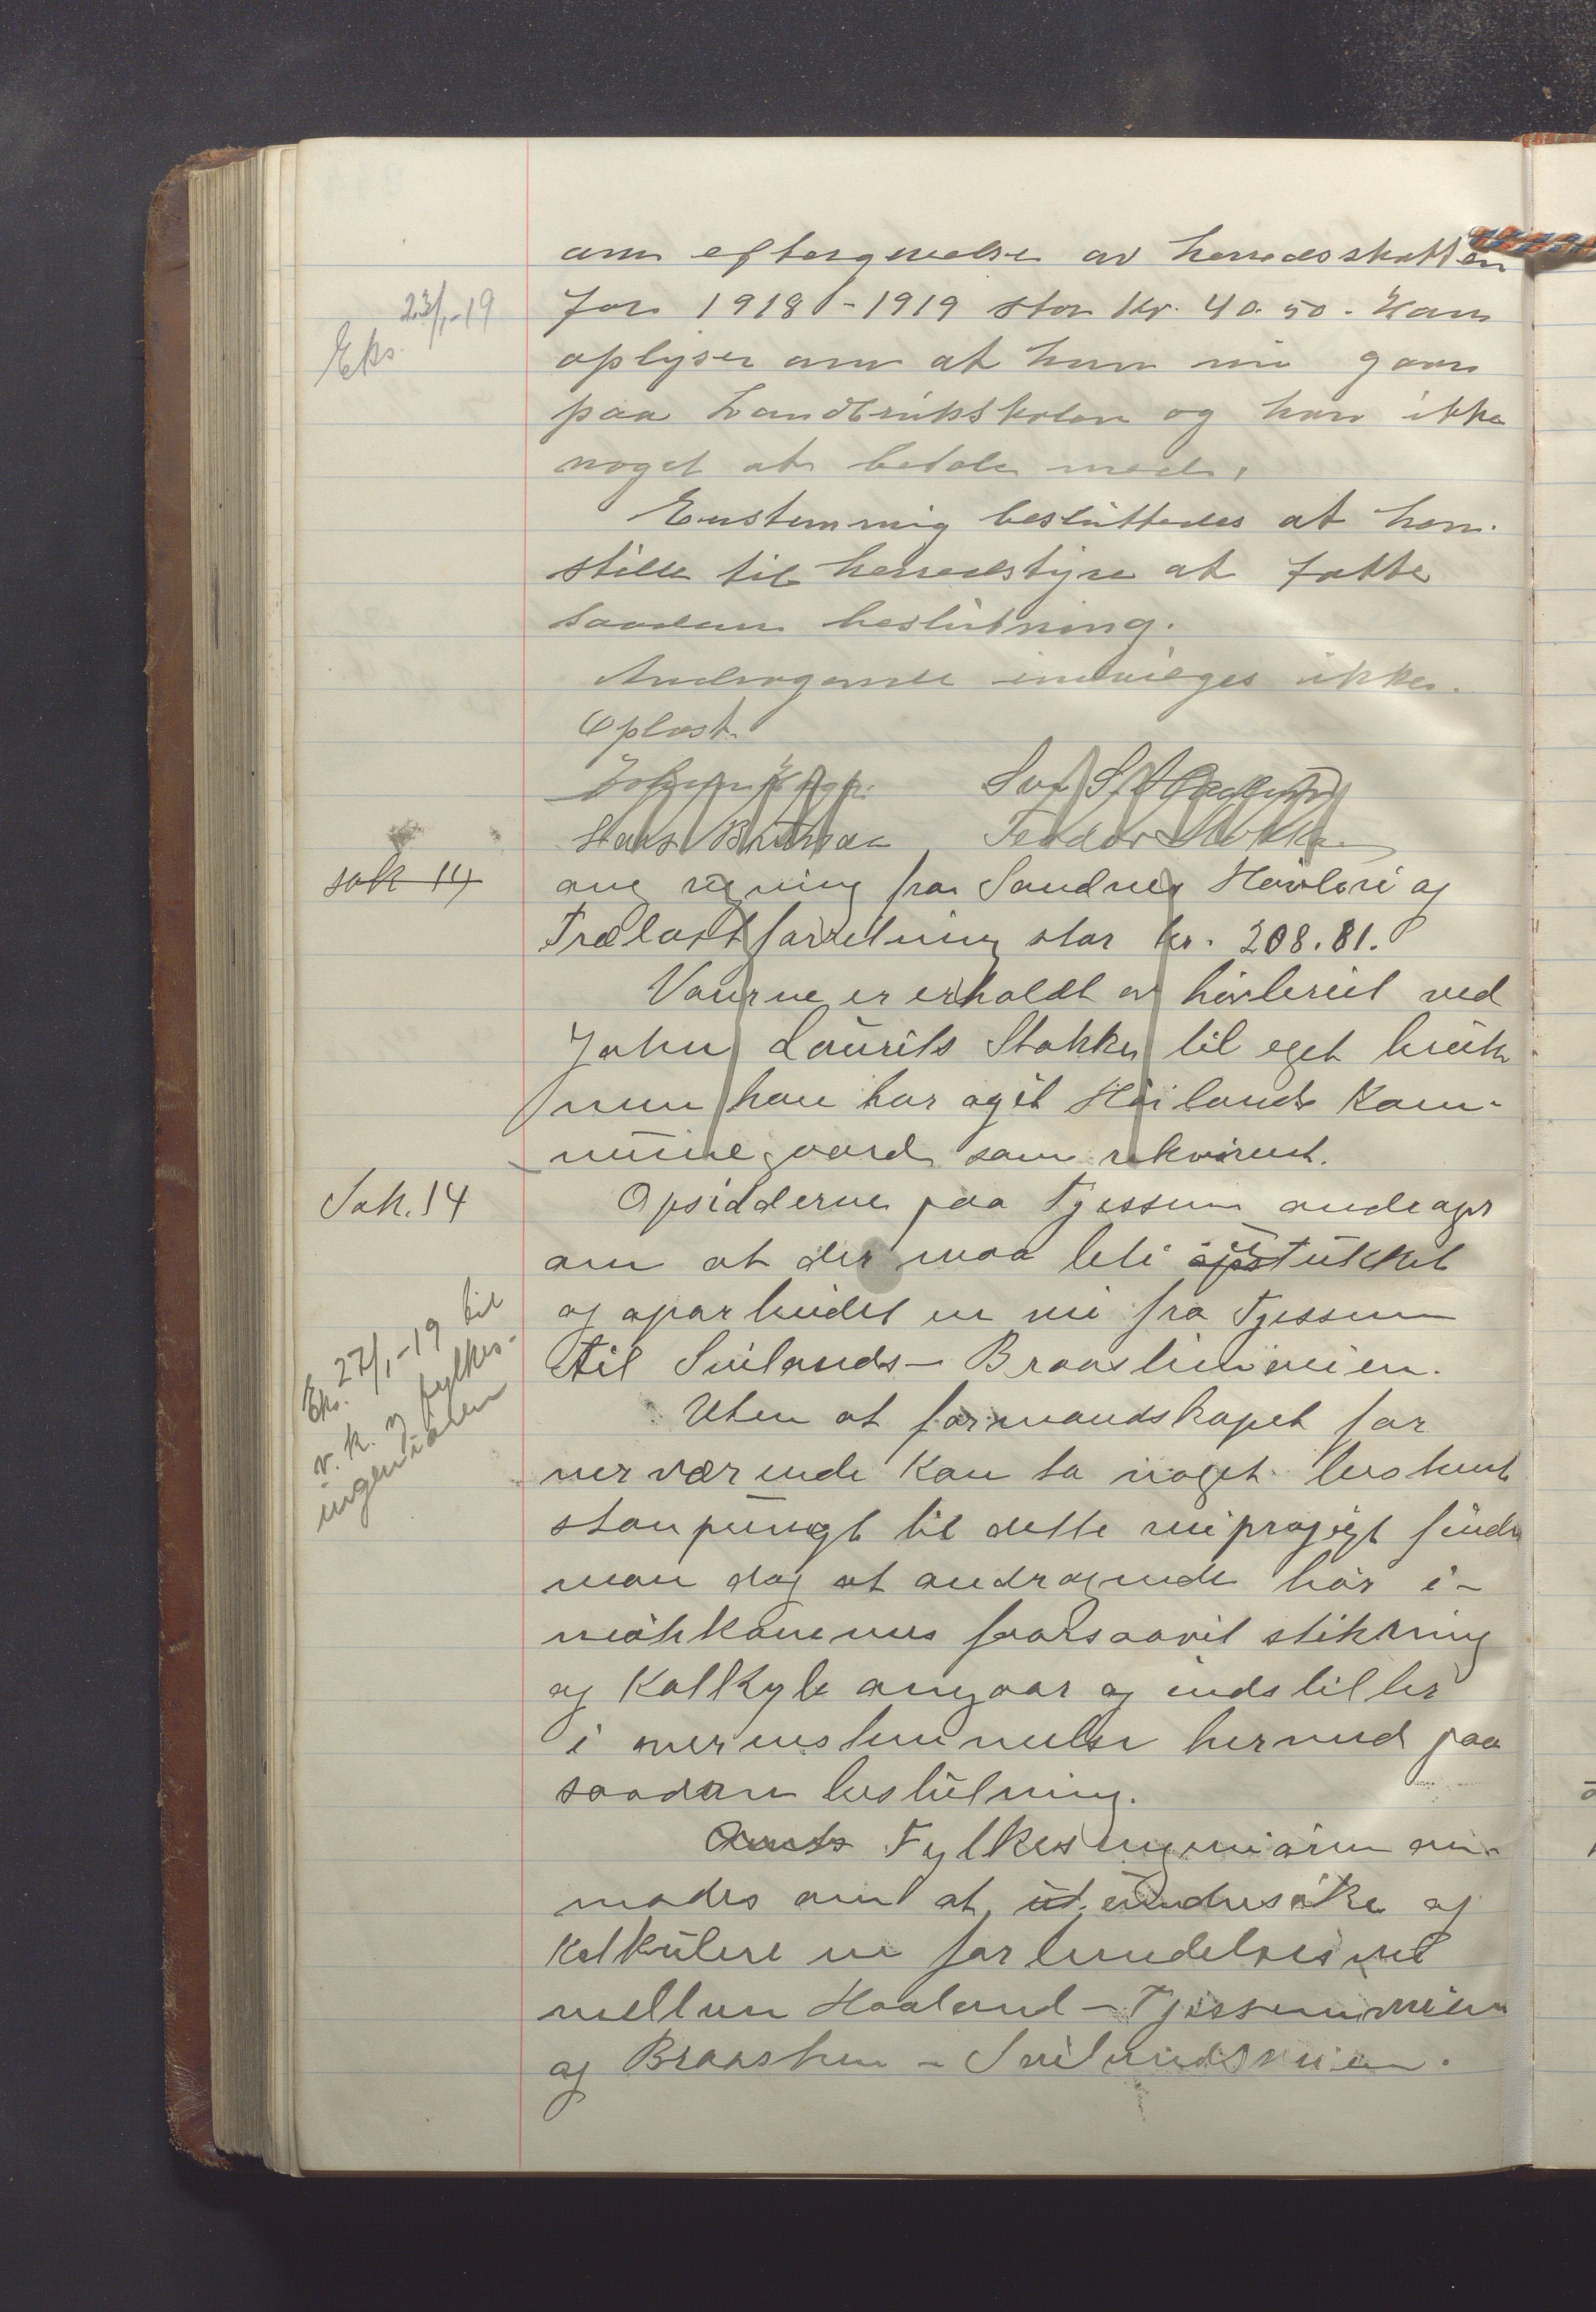 om eftergivelse av herredsskatten
23/1-19
Eks.
for 1918-1919 stor kr. 40.50. Han
oplyser om at han nu gaar
paa Landbrukskolen og har ikke
noget at betale med.
Enstemmig besluttedes at hen-
stille til herredstyre at fatte
saadan beslutning.
Andragende indvilges ikke.
Oplæst.
Hans Bruhaa Teodor Stokka
sak 14
ang regning fra Sandnes Høvleri og
Trælastforretning stor kr. 208.81.
Varerne er erholdt av høvleriet ved
John Laurits Stokka til eget bruk
men han har opgit Høilands Kom-
munegaard som rekvirent.
Sak. 14
Opsidderne paa Tjessem andrager
om at der maa bli opstukket
og oparbeidet en vei fra Tjessem
til Sviland-Braasteinveien.
Eks. 27/1-19 til
v. k. og fylkes-
ingeniøren
Uten at formandskapet for
nerværende kan ta noget bestemt
stanpungt til dette veiprojegt finder
man dog at andragende bør i-
møtekommes forsaavit stikning
og kalkyle angaar og indstiller
i overenstemmelse hermed paa
saadan beslutning.
Amts Fylkesingeniøren an-
modes om at ut undersøke og
kalkulere en forbindelsesvei
mellem Haaland-Tjessemveien
og Braastein-Svilandsveien.